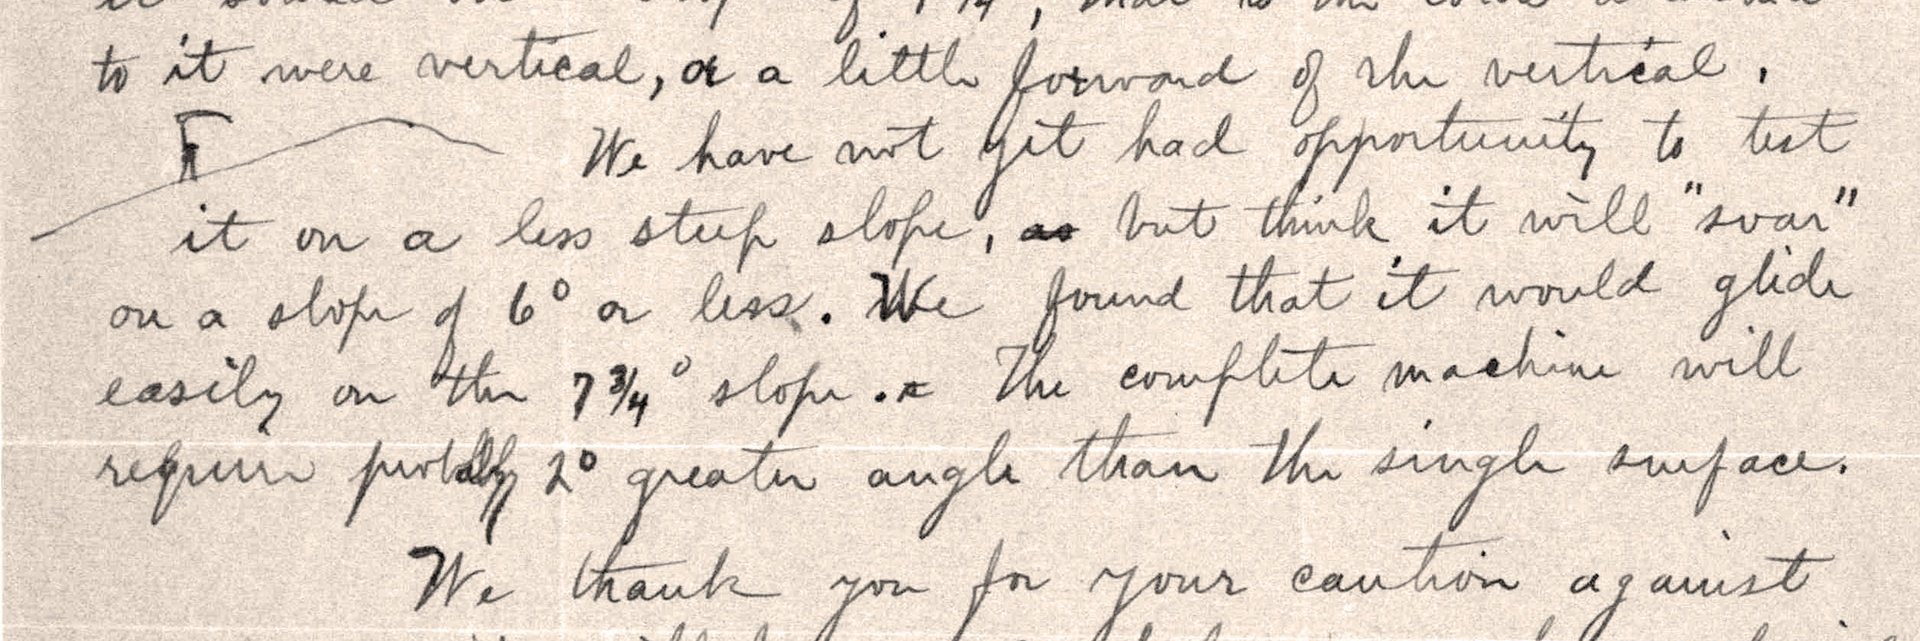 to it were vertical, or a little forward of the vertical.
We have not yet had opportunity to test
it on a less steep slope, as but think it will "soar"
on a slope of 6° or less. We found that it would glide
easily on the 7 3/4° slope. The complete machine will
require probably 2° greater angle than the single surface.
We thank you for your caution against